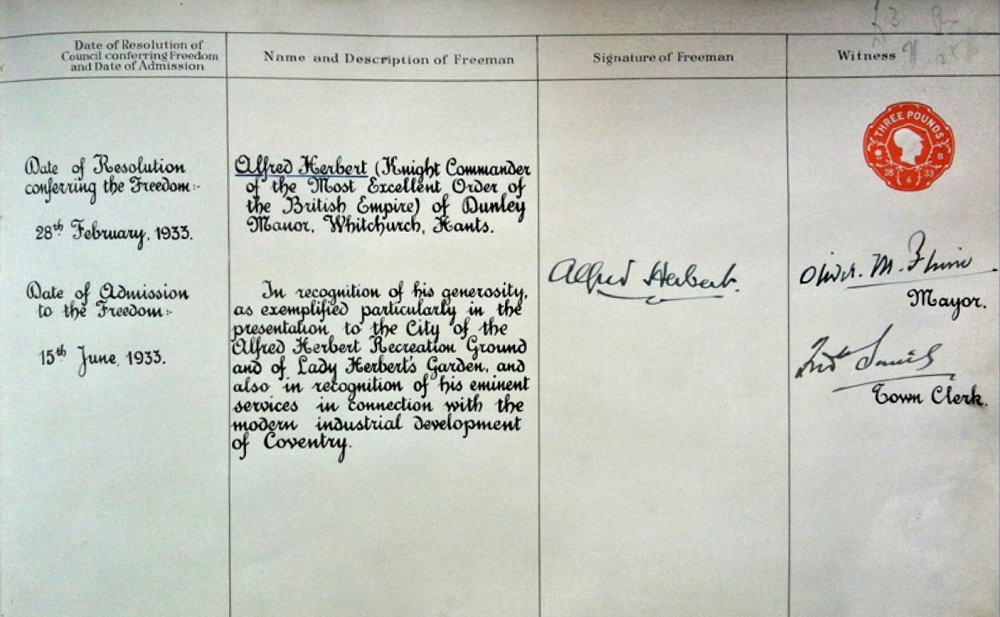 Date of Resolution of
Council conferring Freedom
and Date of Admission
Name and Description of Freeman
Signature of Freeman
Witness
Date of Resolution
conferring the Freedom:-
28th February, 1933.
Date of Admission
to the Freedom:-
15th June, 1933.
Alfred Herbert (Knight Commander
of the Most Excellent Order of
the British Empire) of Dunley
Manor, Whitchurch, Hants.
In recognition of his generosity,
as exemplified particularly in the
presentation to the City of the
Alfred Herbert Recreation Ground
and of Lady Herbert's Garden, and
also in recognition of his eminent
services in connection with the
modern industrial development
of Coventry.
Alfred Herbert.
THREE POUNDS
28 6 33
B
M.
Mayor.
Smith
Town Clerk.